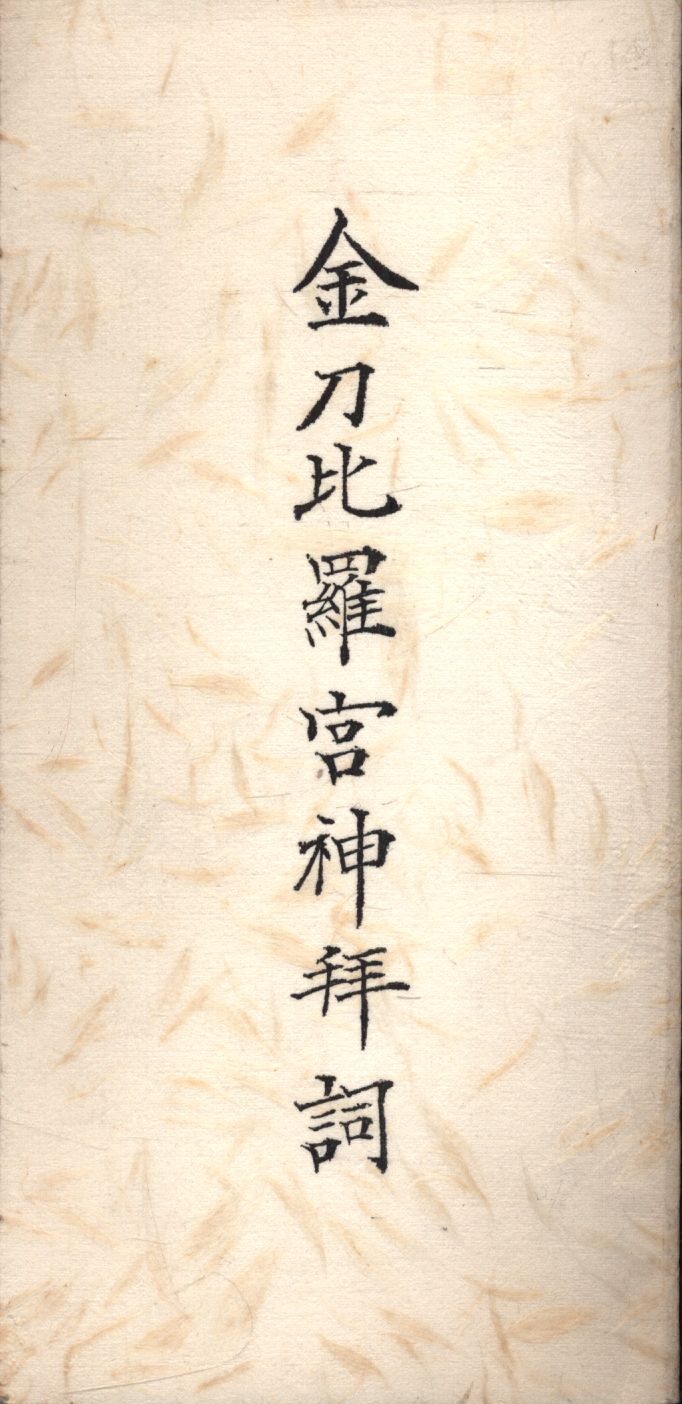 金刀比羅宮神拜詞